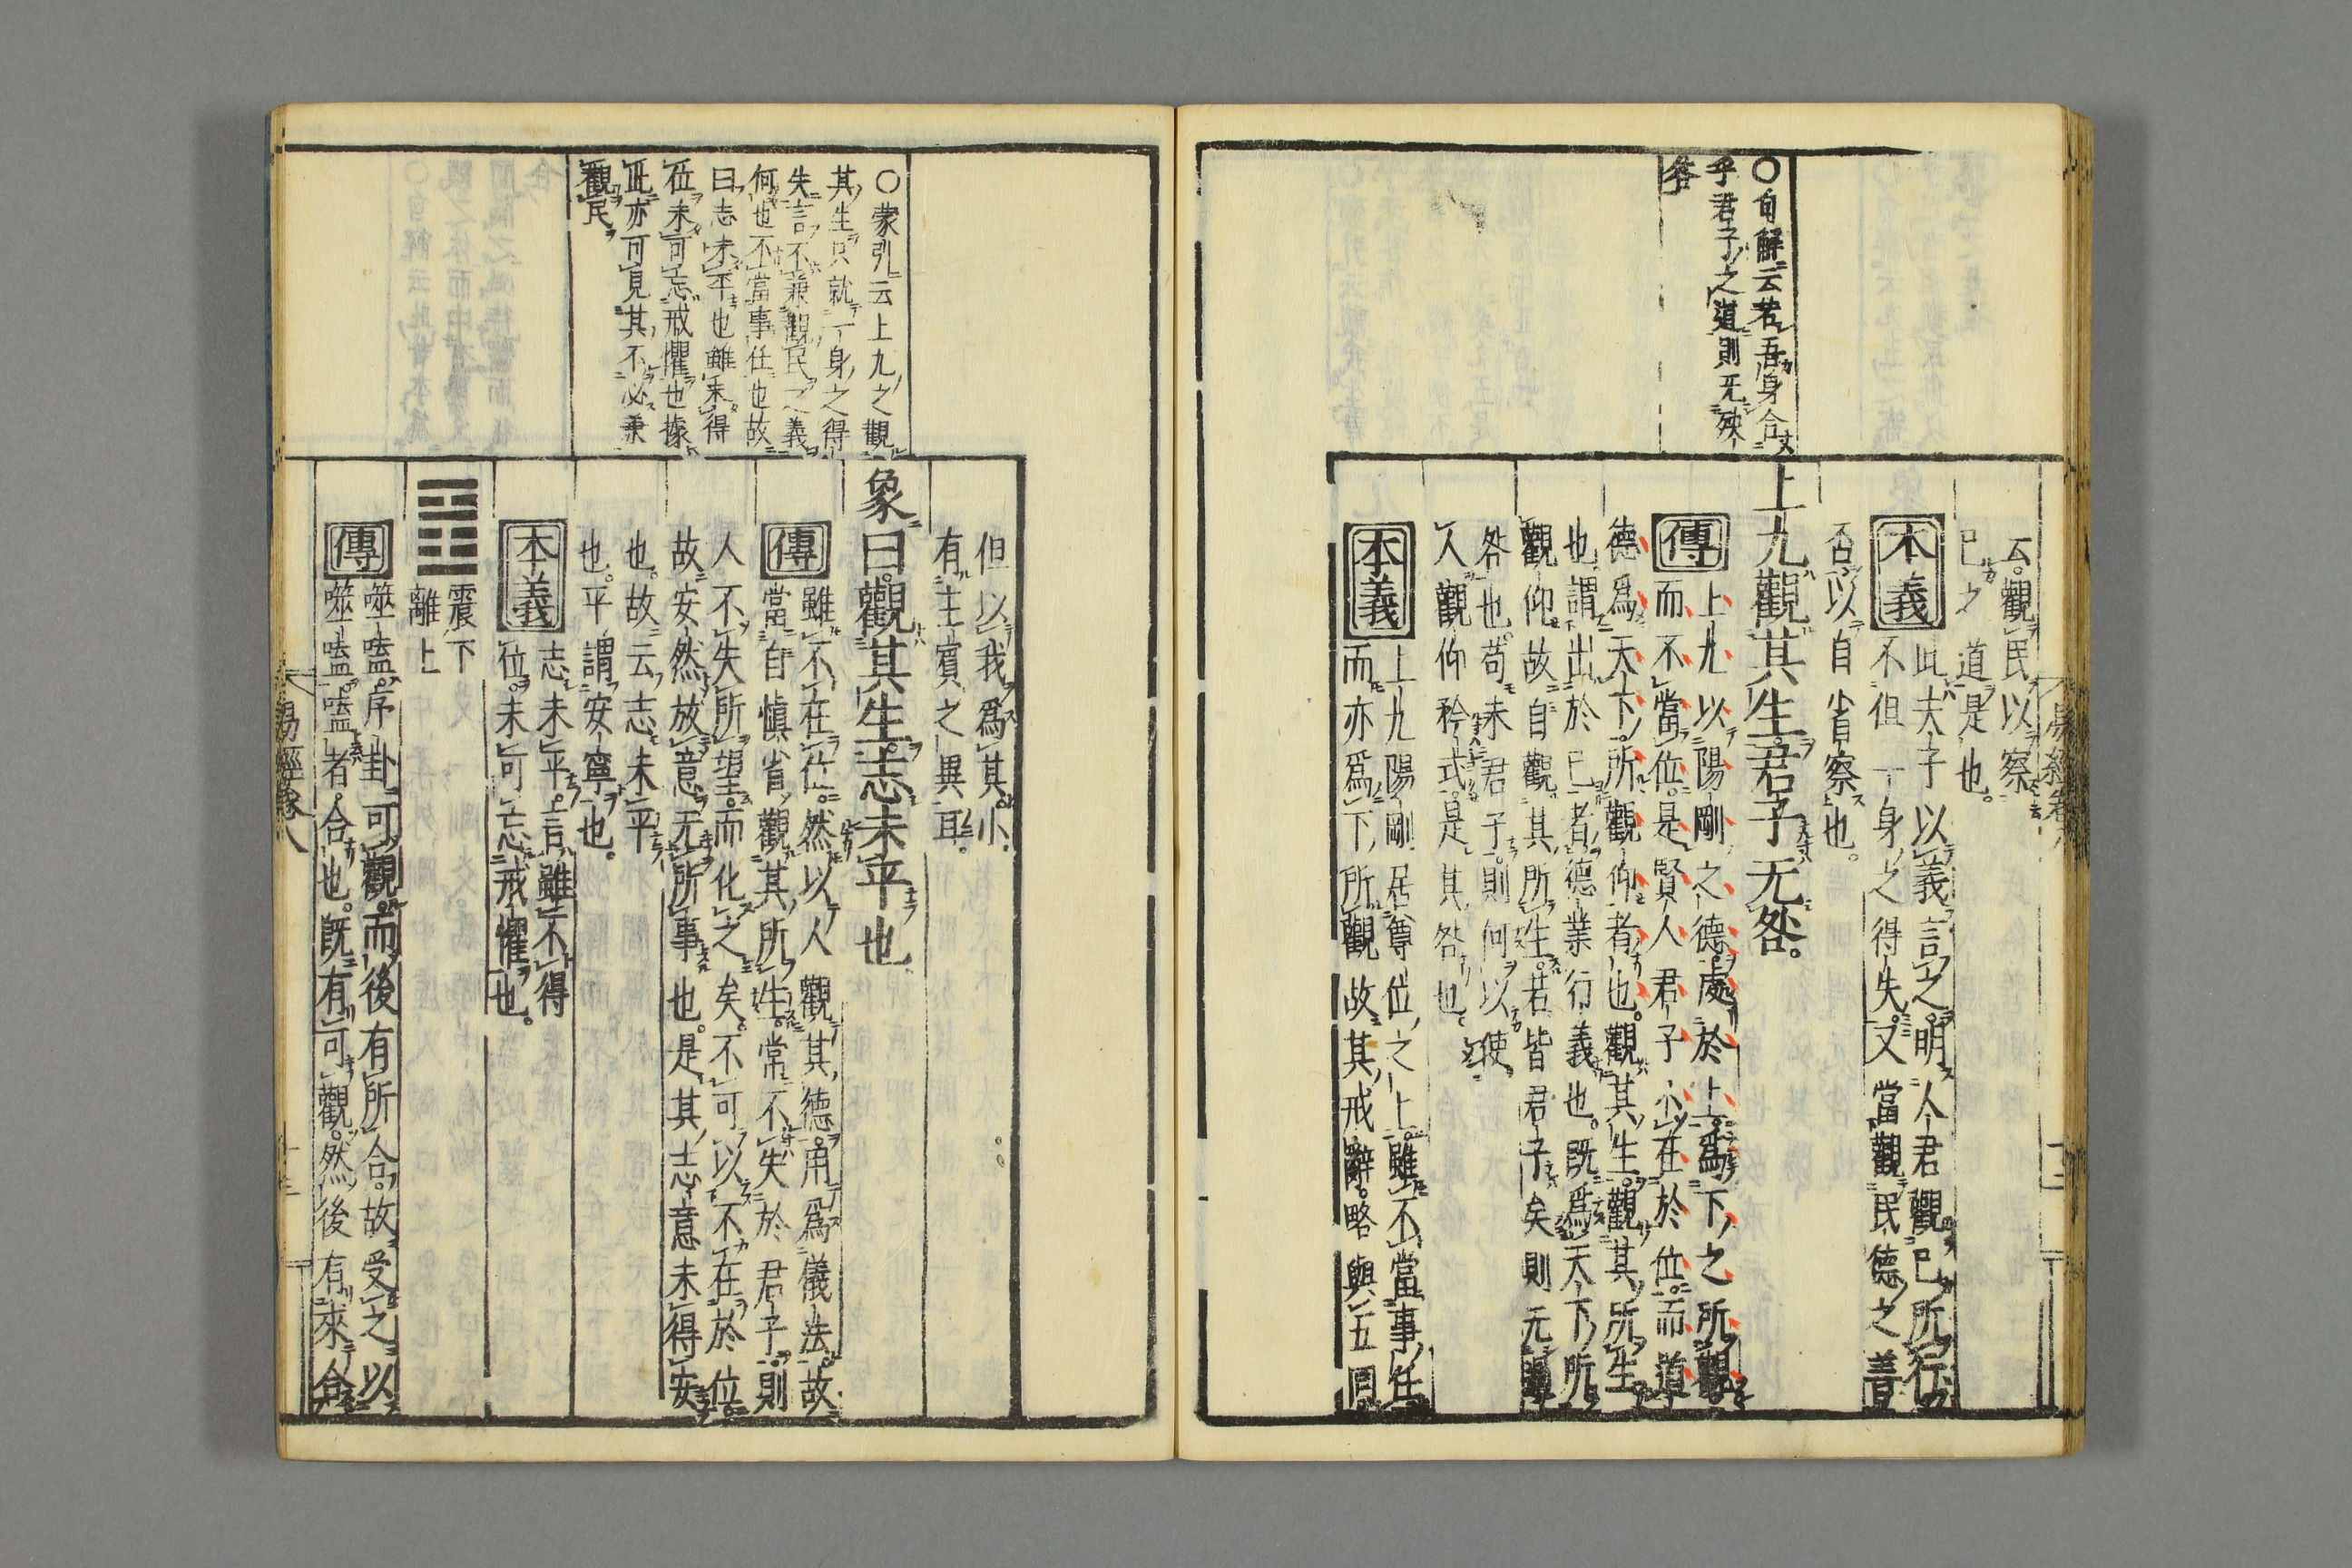 〇句解云若吾身合
乎君子之道則无殃
咎
云觀民以察
己之道是也
本義
此夫子以義言之明人君觀己所行
不但一身之得失又當觀民德之善
否以自省察也
上九觀其生君子无咎
傳
上九以陽剛之德處於上爲下之所觀
而不當位是賢人君子不在於位而道
德爲天下所觀仰者也觀其生觀其所生
也謂出於己者德業行義也既爲天下所
觀仰故自觀其所生若皆君子矣則无過
咎也苟未君子則何以使
人觀仰矜式是其咎也
本義
上九陽剛居尊位之上雖不當事任
而亦爲下所觀故其戒辭略與五同
〇蒙引云上九之觀
其生只就一身之得
失言不兼觀民之義
何也不當事任也故
曰志未平也雖未得
位未可忘戒懼也據
此亦可見其不必兼
觀民
但以我爲其小
有主賓之異耳
象曰觀其生志未平也
傳
雖不在位然以人觀其德用爲儀法故
當自慎省觀其所生常不失於君子則
人不失所望而化之矣不可以不在於位
故安然放意无所事也是其志意未得安
也故云志未平
也平謂安寧也
本義
志未平言雖不得
位未可忘戒懼也
震下
離上
傳
噬嗑序卦可觀而後有所合故受之以
噬嗑嗑者合也既有可觀然後有來合
易經卷八